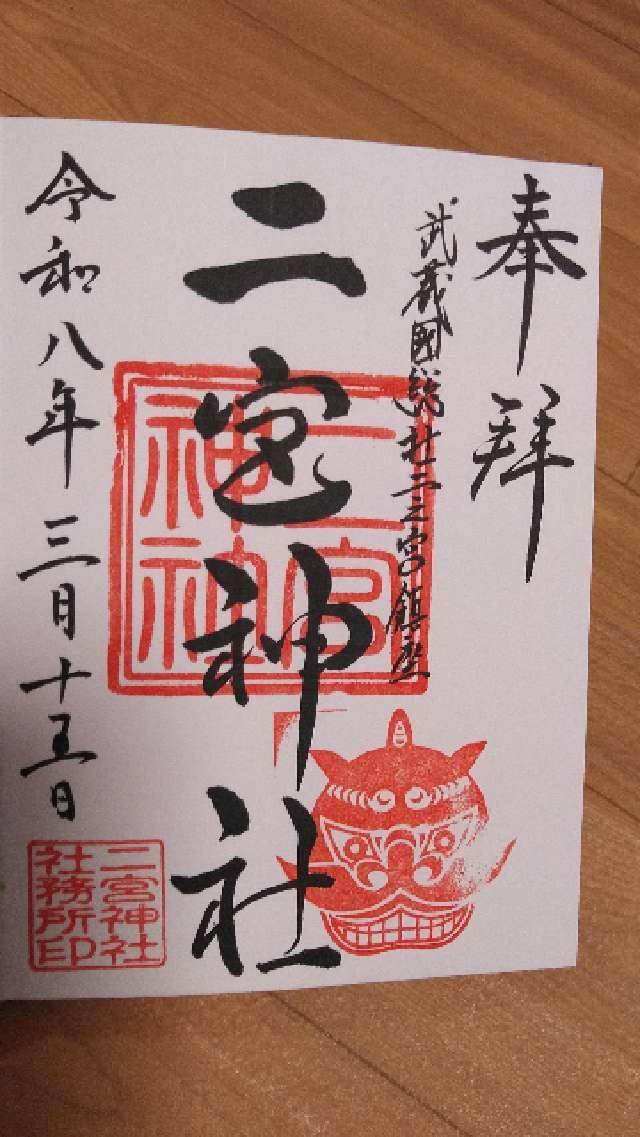 奉拝
武蔵國総社二之宮鎮座
二宮神社
二宮神社
令和八年三月十五日
二宮神社
社務所印